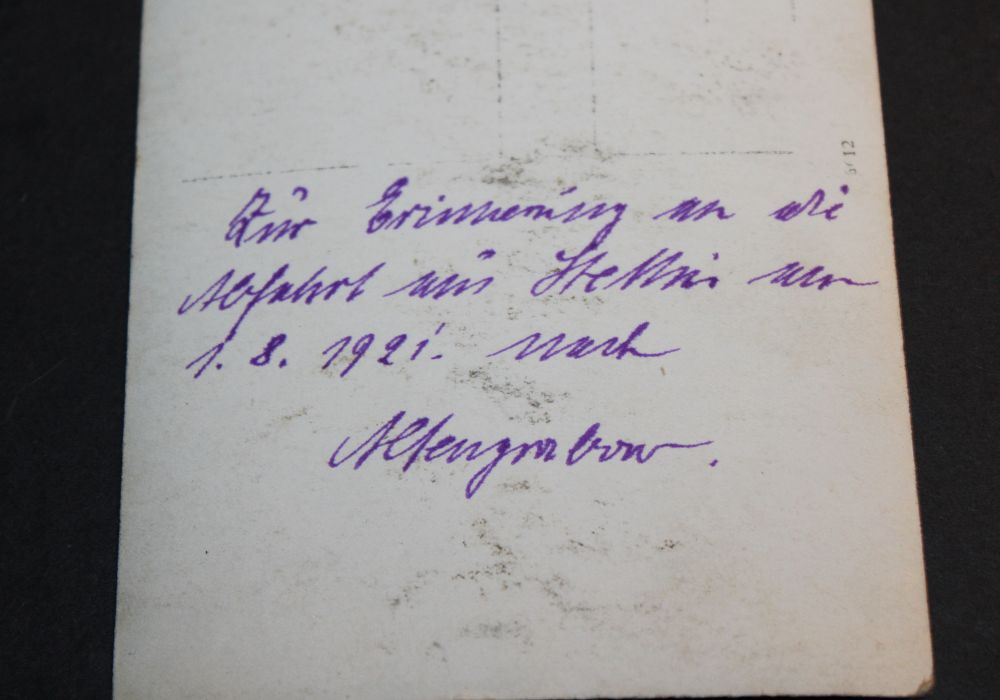 Zur Erinnerung an die
Abfahrt aus Stettin am
1. 8. 1921. nach
Altengrabow.
12